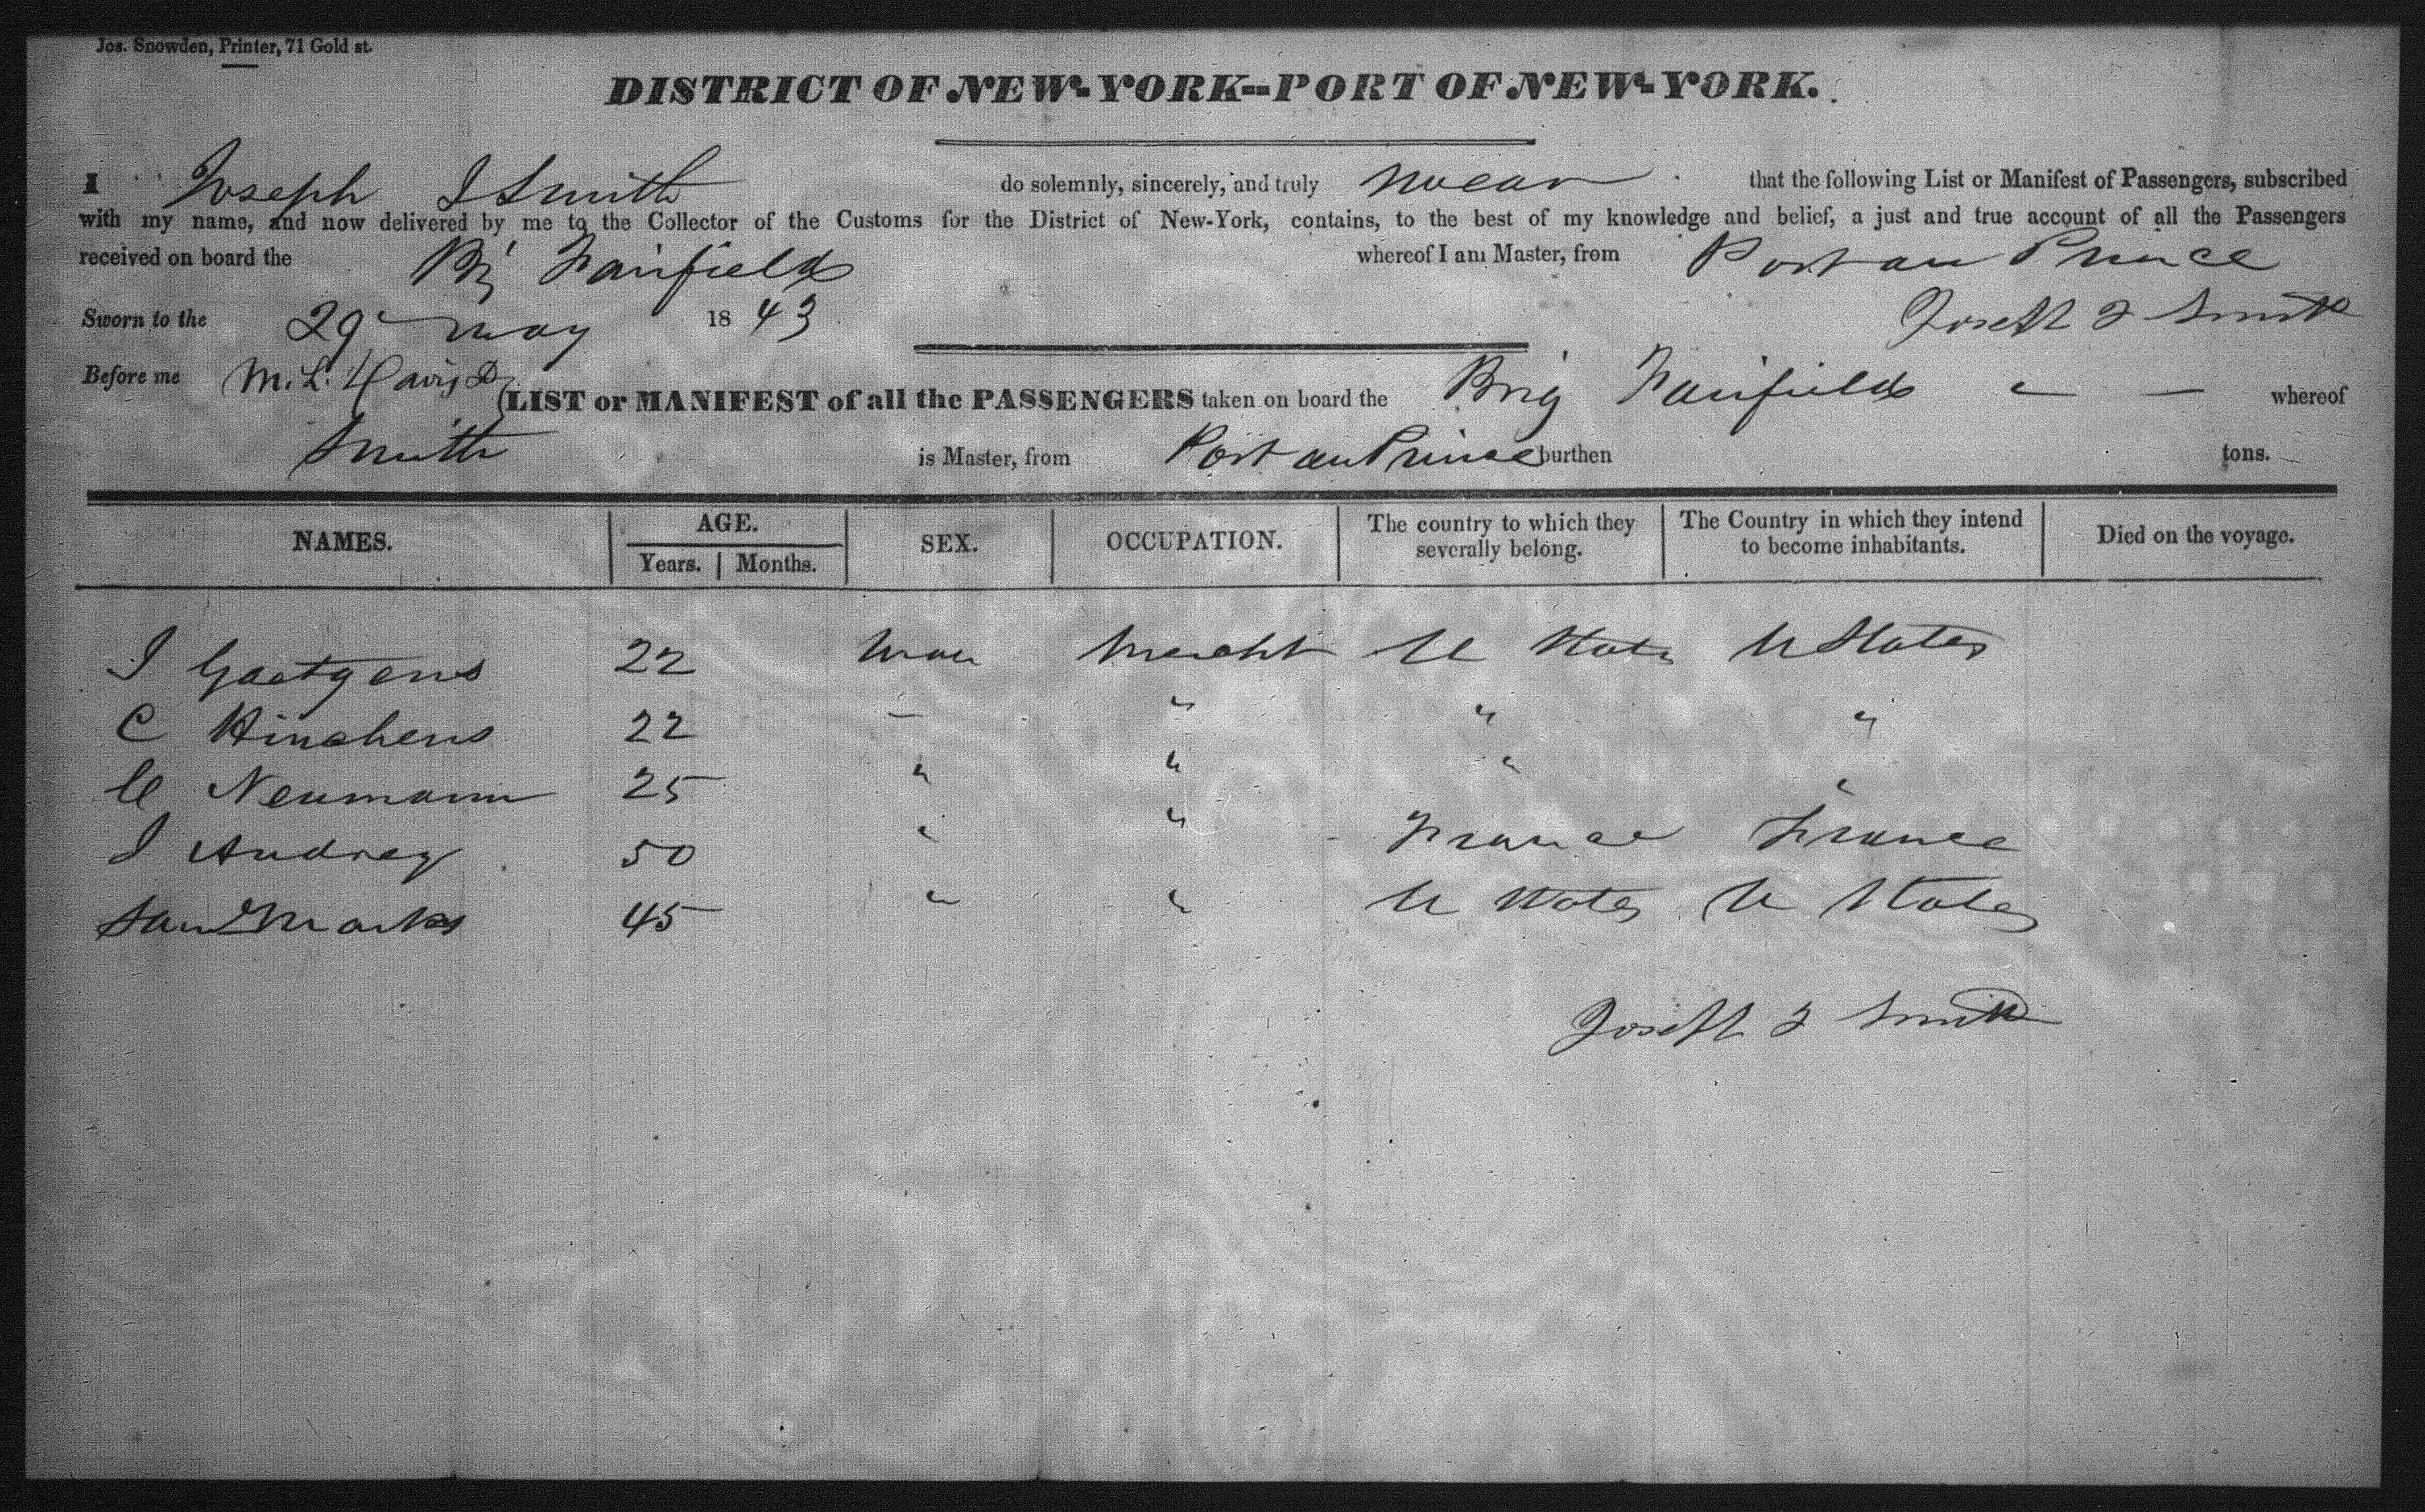 Jos. Snowden, Printer, 71 Gold st.
DISTRICT OF NEW-YORK--PORT OF NEW-YORK.
I Joseph J Smith do solemnly, sincerely, and truly swear that the following List or Manifest of Passengers, subscribed
with my name, and now delivered by me to the Collector of the Customs for the District of New-York, contains, to the best of my knowledge and belief, a just and true account of all the Passengers
received on board the Brig Fairfield whereof I am Master, from Port au Prince
Sworn to the 29 May 1843 Joseph J Smith
Before me M. L. Davis
LIST or MANIFEST of all the PASSENGERS taken on board the Brig Fairfield whereof
Smith is Master, from Port au Prince burthen tons.
NAMES. AGE. Years. Months. SEX. OCCUPATION. The country to which they severally belong. The Country in which they intend to become inhabitants. Died on the voyage.
J Gaetgens 22 Man Mercht U States U States
C Hinchens 22 – " " "
C Neumann 25 " " " "
J Audrey 50 " " France France
Saml Marks 45 " " U States U States
Joseph J Smith